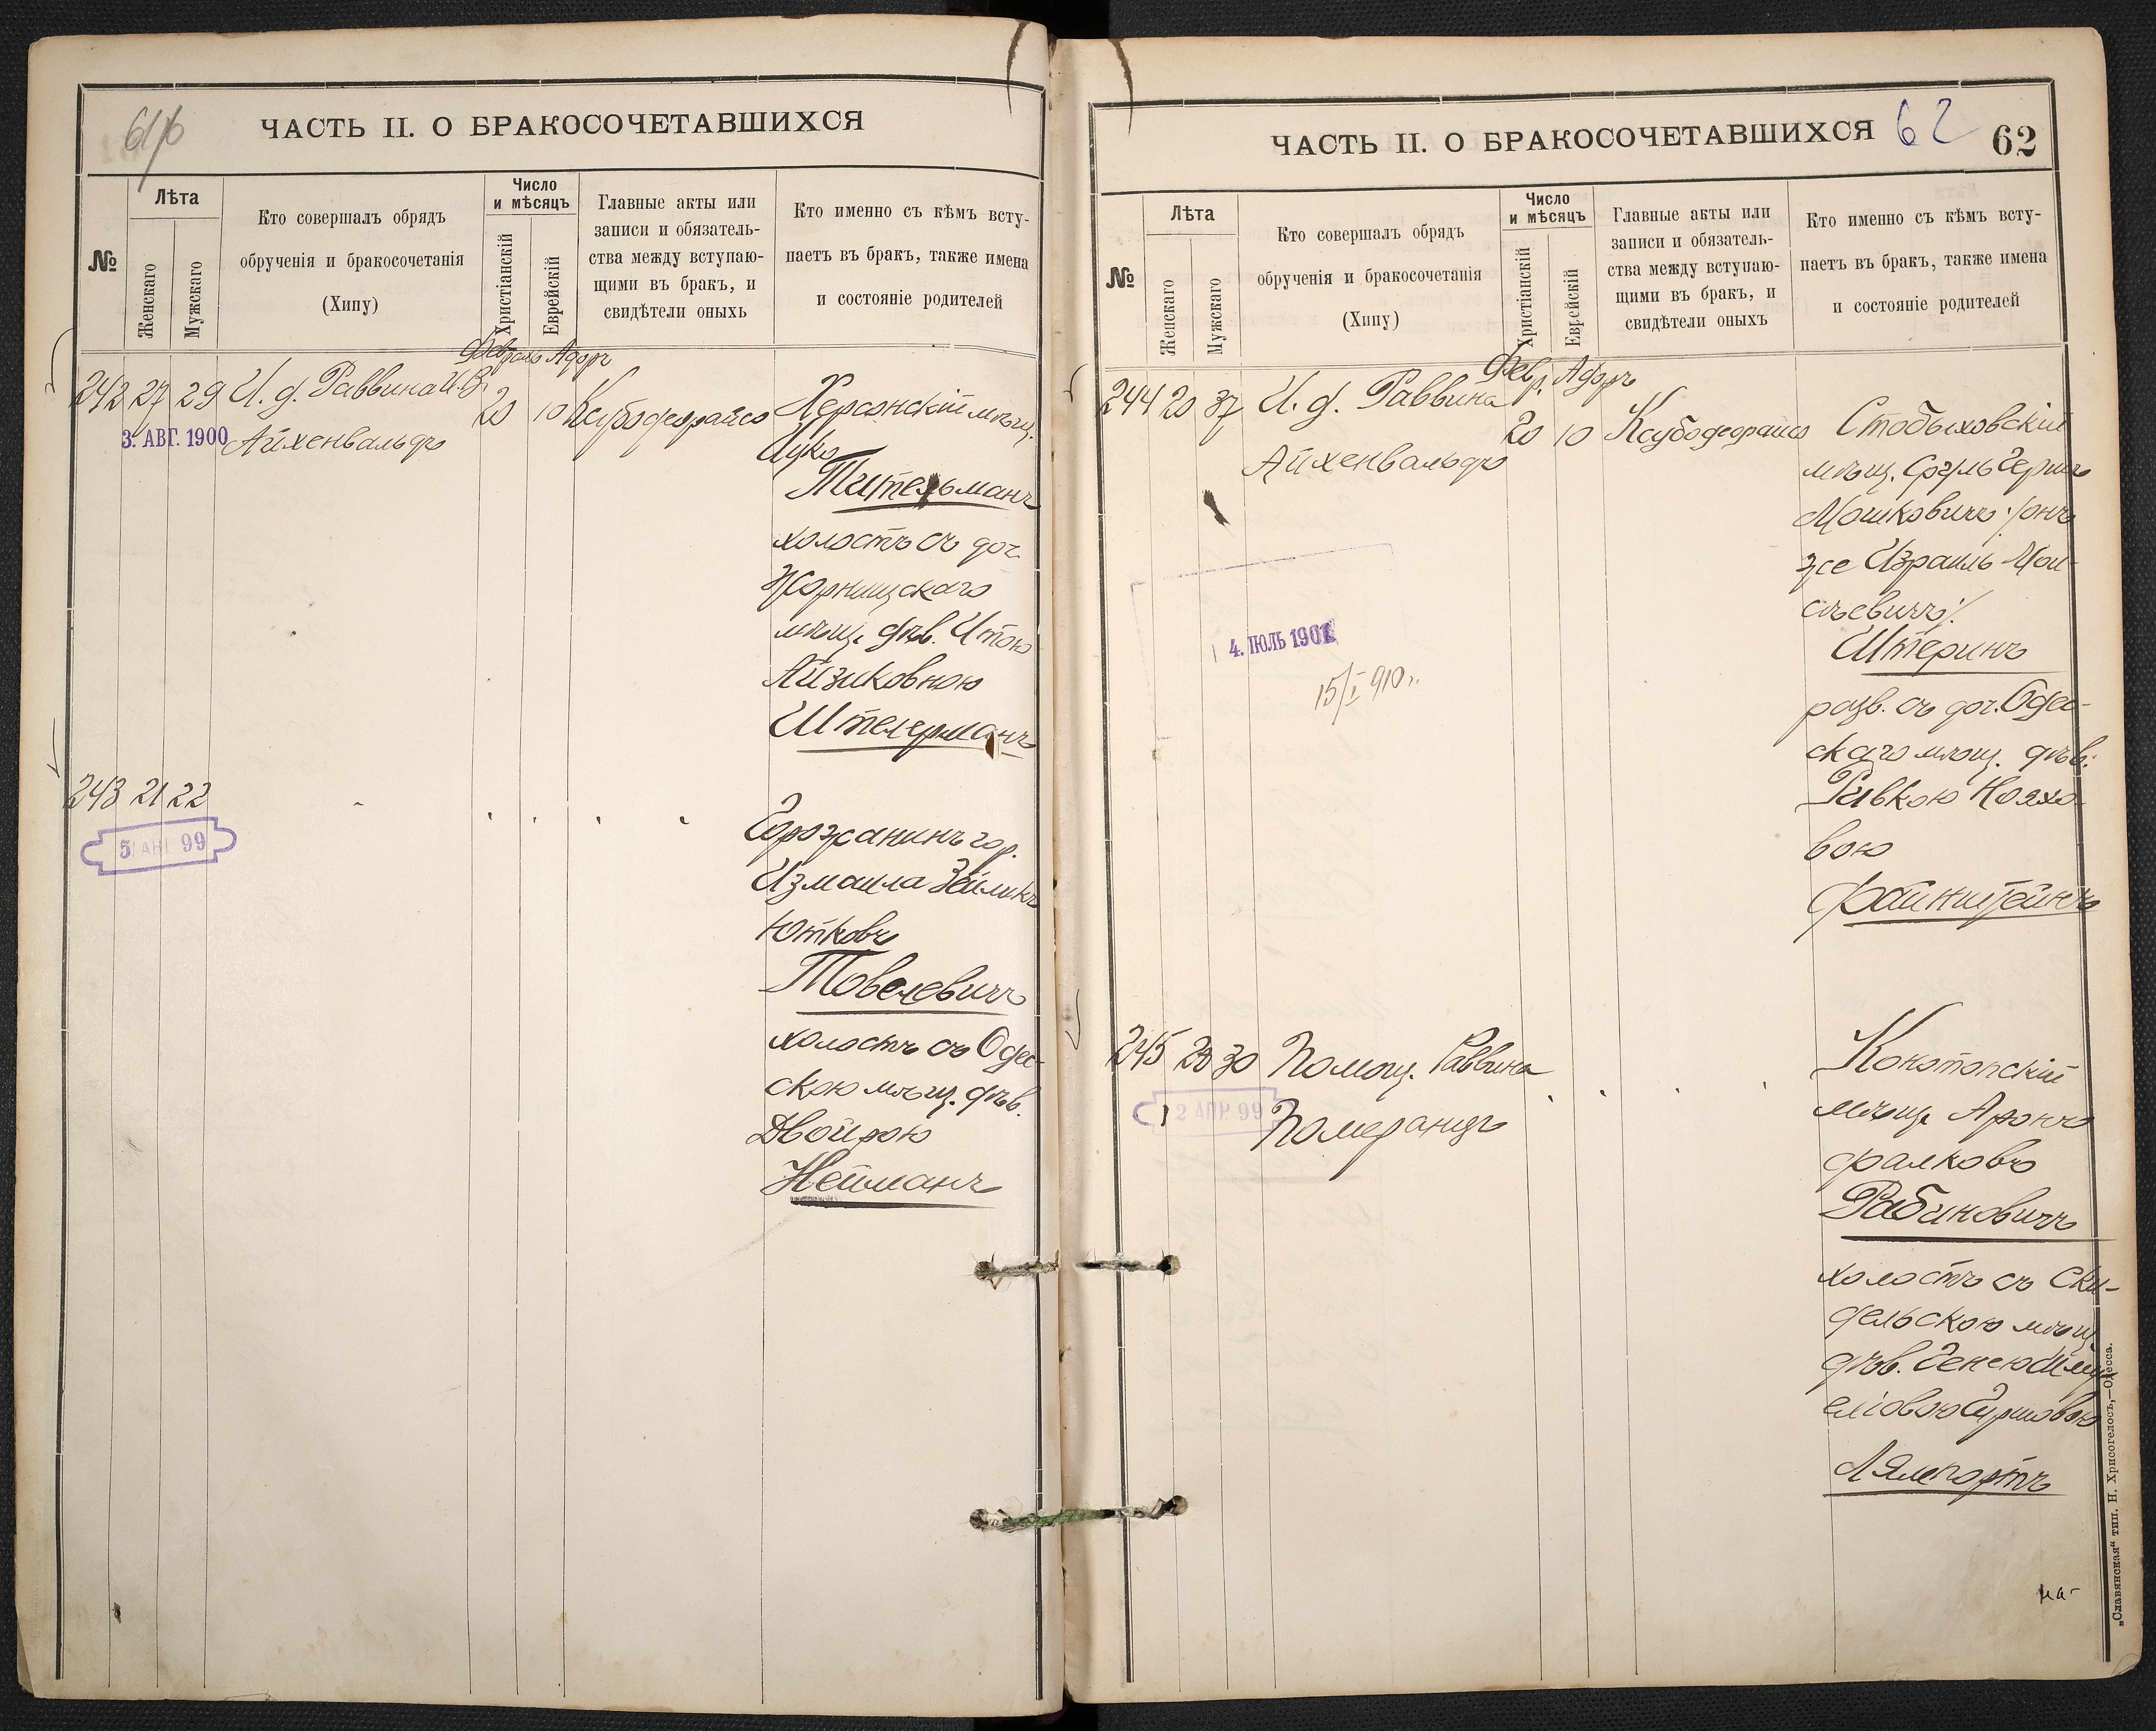 61/б
ЧАСТЬ II. О БРАКОСОЧЕТАВШИХСЯ
№
Лѣта
Женскаго
Мужскаго
Кто совершалъ обрядъ
обрученія и бракосочетанія
(Хипу)
Число
и мѣсяцъ
Христіанскій
Еврейскій
Главные акты или
записи и обязатель-
ства между вступаю-
щими въ бракъ, и
свидѣтели оныхъ
Кто именно съ кѣмъ всту-
паетъ въ бракъ, также имена
и состояніе родителей
Февраль Адоръ
242 27 29 И. д. Раввина
Айхенвальдъ
3. АВГ. 1900
20 10
Херсонскій мѣщ.
Ицко
Тительманъ
холостъ съ доч.
мѣщ. дѣв. Итою
Айзиковною
Штелерманъ
243 21 22
5 99
Горожанинъ гор.
Измаила Зейликъ
Ютковъ
Товелевичъ
холостъ съ Одес-
скою мѣщ. дѣв.
Двойрою
Нейманъ
ЧАСТЬ II. О БРАКОСОЧЕТАВШИХСЯ
62
62
№
Лѣта
Женскаго
Мужскаго
Кто совершалъ обрядъ
обрученія и бракосочетанія
(Хипу)
Число
и мѣсяцъ
Христіанскій
Еврейскій
Главные акты или
записи и обязатель-
ства между вступаю-
щими въ бракъ, и
свидѣтели оныхъ
Кто именно съ кѣмъ всту-
паетъ въ бракъ, также имена
и состояніе родителей
Февр. Адоръ
244 20 37 И. д. Раввина
Айхенвальдъ
20 10
4. ІЮЛЬ 1901
15/I 910
Стобыховскій
мѣщ. Сруль Герш
Мошковичъ /онъ
же Израиль Мои-
сѣевичъ/
Штеринъ
разв. съ доч. Одес-
скаго мѣщ. дѣв.
Ривкою Нояхо-
вою
Файнштейнъ
245 28 30 Помощ. Раввина
Померанцъ
2 АПР. 99
Конотопскій
мѣщ. Аронъ
Фалковъ
Рабиновичъ
холостъ съ Ски-
дельскою мѣщ.
дѣв. Генею Шму-
еліовою Гиршовою
Лямпортъ
на-
„Славянская“ тип. Н. Хрисогелосъ,—Одесса.